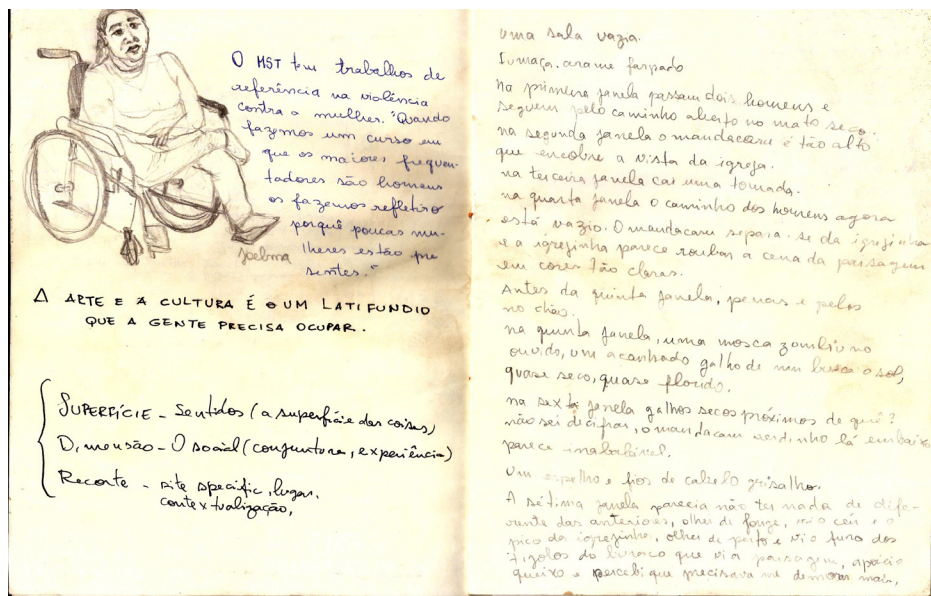 O MST tem trabalhos de
referência na violência
contra a mulher. "Quando
fazemos um curso em
que os maiores frequen-
tadores são homens
os fazemos refletir o
porquê poucas mu-
lheres estão pre
sentes."
Joelma
A ARTE E A CULTURA É O UM LATIFUNDIO
QUE A GENTE PRECISA OCUPAR.
SUPERFÍCIE - Sentidos (a superfície das coisas)
Dimensão - O social (conjuntura, experiência)
Recorte - site specific, lugar,
contextualização,
uma sala vazia.
Fumaça, arame farpado
na primeira janela passam dois homens e
seguem pelo caminho aberto no mato seco.
na segunda janela o mandacaru é tão alto
que encobre a vista da igreja.
na terceira janela cai uma tomada.
na quarta janela o caminho dos homens agora
está vazio. O mandacaru separa-se da igrejinha
e a igrejinha parece roubar a cena da paisagem
em cores tão claras.
Antes da quinta janela, penas e pelos
no chão.
na quinta janela, uma mosca zumbiu no
ouvido, um acanhado galho de um busca o sol,
quase seco, quase florido.
na sexta janela galhos secos próximos de quê?
não sei decifrar, o mandacaru verdinho lá embaixo
parece inabalável.
Um espelho e fios de cabelo grisalho.
A sétima janela parecia não ter nada de dife-
rente das anteriores, olhei de longe, vi o céu e o
pico da igrejinha, olhei de perto e vi o furo dos
tijolos do buraco que vi a paisagem, apoio o
queixo e percebi que precisava me demorar mais,